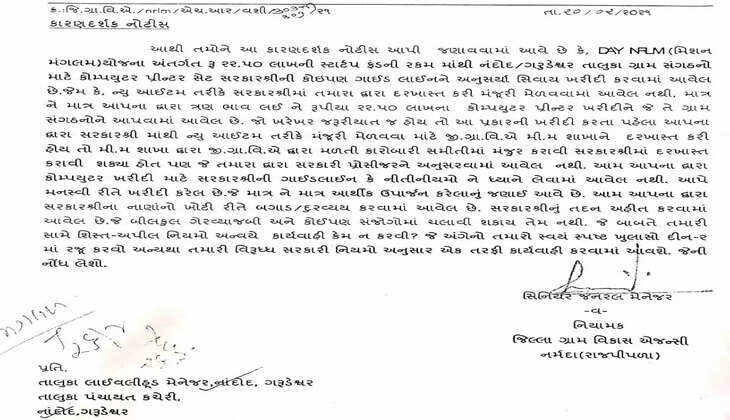 ક્ર.:જિ.ગ્રા.વિ.એ./nrlm/એચ.આર/વશી/ /૨૧ તા.૨૦/૦૨/૨૦૨૧
કારણદર્શક નોટીસ
આથી તમોને આ કારણદર્શક નોટીસ આપી જણાવવામાં આવે છે કે, DAY NRLM (મિશન
મંગલમ)યોજના અંતર્ગત રૂ ૨૨.૫૦ લાખની સ્ટાર્ટપ ફંડની રકમ માંથી નંદોદ/ગરુડેશ્વર તાલુકા ગ્રામ સંગઠનો
માટે કોમ્પયુટર પ્રીન્ટર સેટ સરકારશ્રીની કોઇપણ ગાઈડ લાઈનને અનુસર્યા સિવાય ખરીદી કરવામાં આવેલ
છે.જેમ કે, ન્યુ આઈટમ તરીકે સરકારશ્રીમાં તમારા દ્વારા દરખાસ્ત કરી મંજુરી મેળવવામાં આવેલ નથી. માત્ર
ને માત્ર આપના દ્વારા ત્રણ ભાવ લઈ ને રૂપીયા ૨૨.૫૦ લાખના કોમ્પયુટર પ્રીન્ટર ખરીદીને જે તે ગ્રામ
સંગઠનોને આપવામાં આવેલ છે. જો ખરેખર જરૂરીયાત જ હોય તો આ પ્રકારની ખરીદી કરતા પહેલા આપના
દ્વારા સરકારશ્રી માંથી ન્યુ આઈટમ તરીકે મંજૂરી મેળવવા માટે જી.ગ્રા.વિ.એ મી.મ શાખાને દરખાસ્ત કરી
હોય તો મી.મ શાખા દ્વારા જી.ગ્રા.વિ.એ દ્વારા મળતી કારોબારી સમીતીમાં મંજુર કરાવી સરકારશ્રીમાં દરખાસ્ત
કરાવી શક્યા હોત પણ જે તમારા દ્વારા સરકારી પ્રોસીજરને અનુસરવામાં આવેલ નથી. આમ આપના દ્વારા
કોમ્પયુટર ખરીદી માટે સરકારશ્રીની ગાઈડલાઈન કે નીતીનીયમો ને ધ્યાને લેવામાં આવેલ નથી. આપે
મનસ્વી રીતે ખરીદી કરેલ છે.જે માત્ર ને માત્ર આર્થીક ઉપાર્જન કરેલાનું જણાઈ આવે છે. આમ આપના દ્વારા
સરકારશ્રીના નાણાંનો ખોટી રીતે બગાડ/દુરવ્યય કરવામાં આવેલ છે. સરકારશ્રીનું તદન અહીત કરવામાં
આવેલ છે.જે બીલકુલ ગેરવ્યાજબી અને કોઈપણ સંજોગોમાં ચલાવી શકાય તેમ નથી. જે બાબતે તમારી
સામે શિસ્ત-અપીલ નિયમો અન્વયે કાર્યવાહી કેમ ન કરવી? જે અંગેનો તમારો સ્વયં સ્પષ્ટ ખુલાસો દીન-૨
માં રજૂ કરવો અન્યથા તમારી વિરૂધ્ધ સરકારી નિયમો અનુસાર એક તરફી કાર્યવાહી કરવામાં આવશે. જેની
નોંધ લેશો.
સિનિયર જનરલ મેનેજર
-વ-
નિયામક
જિલ્લા ગ્રામ વિકાસ એજન્સી
નર્મદા(રાજપીપળા)
પ્રતિ,
તાલુકા લાઈવલીહુડ મેનેજર,નાંદોદ, ગરૂડેશ્વર
તાલુકા પંચાયત કચેરી,
નાંદોદ,ગરૂડેશ્વર